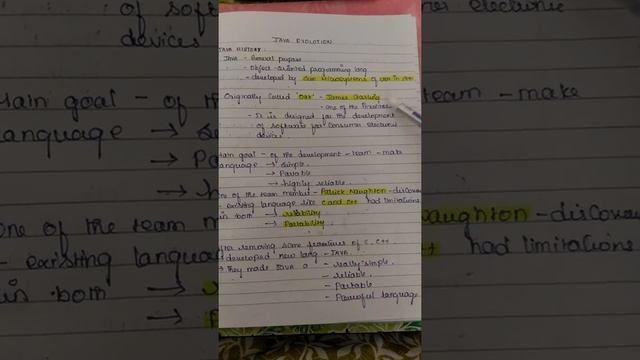 JAVA EVOLUTION
JAVA HISTORY
JAVA - General purpose
- Object-oriented programming lang
- developed by Sun Microsystems of USA in 1991
Originally called 'Oak' - James Gosling
- one of the inventor
- It is designed for the development
of software for consumer electronic
devices
main goal - of the development - team - make
language → simple
→ Portable
→ highly reliable
one of the team member - Patrick Naughton - discover
- existing language like C and C++ had limitations
in both → reliability
→ Portability
After removing some features of C, C++
developed new lang - JAVA
They made JAVA a - really simple
- reliable
- Portable
- Powerful language